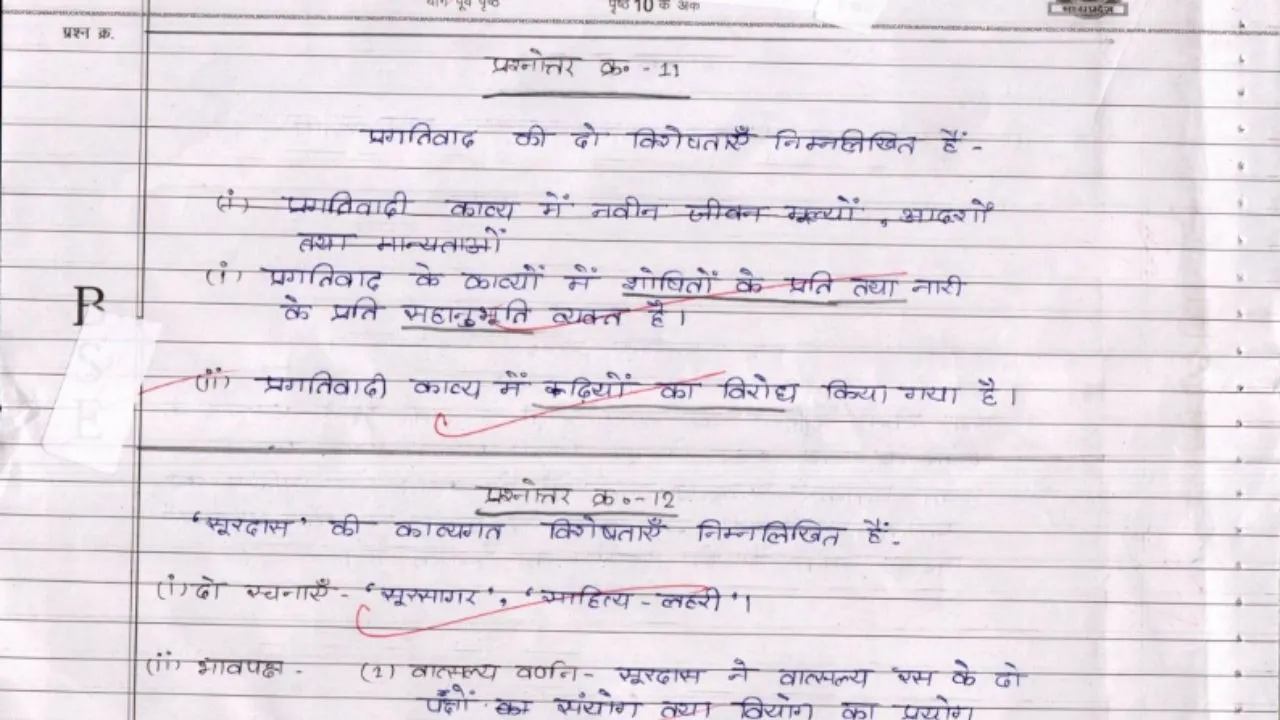 पृष्ठ 10 के अंक
मध्यप्रदेश
प्रश्न क्र.
प्रश्नोत्तर क्र० - 11
प्रगतिवाद की दो विशेषताएँ निम्नलिखित हैं -
(i) प्रगतिवादी काव्य में नवीन जीवन मूल्यों , आदर्शों
तथा मान्यताओं
(i) प्रगतिवाद के काव्यों में शोषितों के प्रति तथा नारी
के प्रति सहानुभूति व्यक्त है।
B
S
E
(ii) प्रगतिवादी काव्य में रूढ़ियों का विरोध किया गया है।
प्रश्नोत्तर क्र०-12
'सूरदास' की काव्यगत विशेषताएँ निम्नलिखित हैं -
(i) दो रचनाएँ - 'सूरसागर', 'साहित्य - लहरी'।
(ii) भावपक्ष - (1) वात्सल्य वर्णन - सूरदास ने वात्सल्य रस के दो
पक्षों का संयोग तथा वियोग का प्रयोग